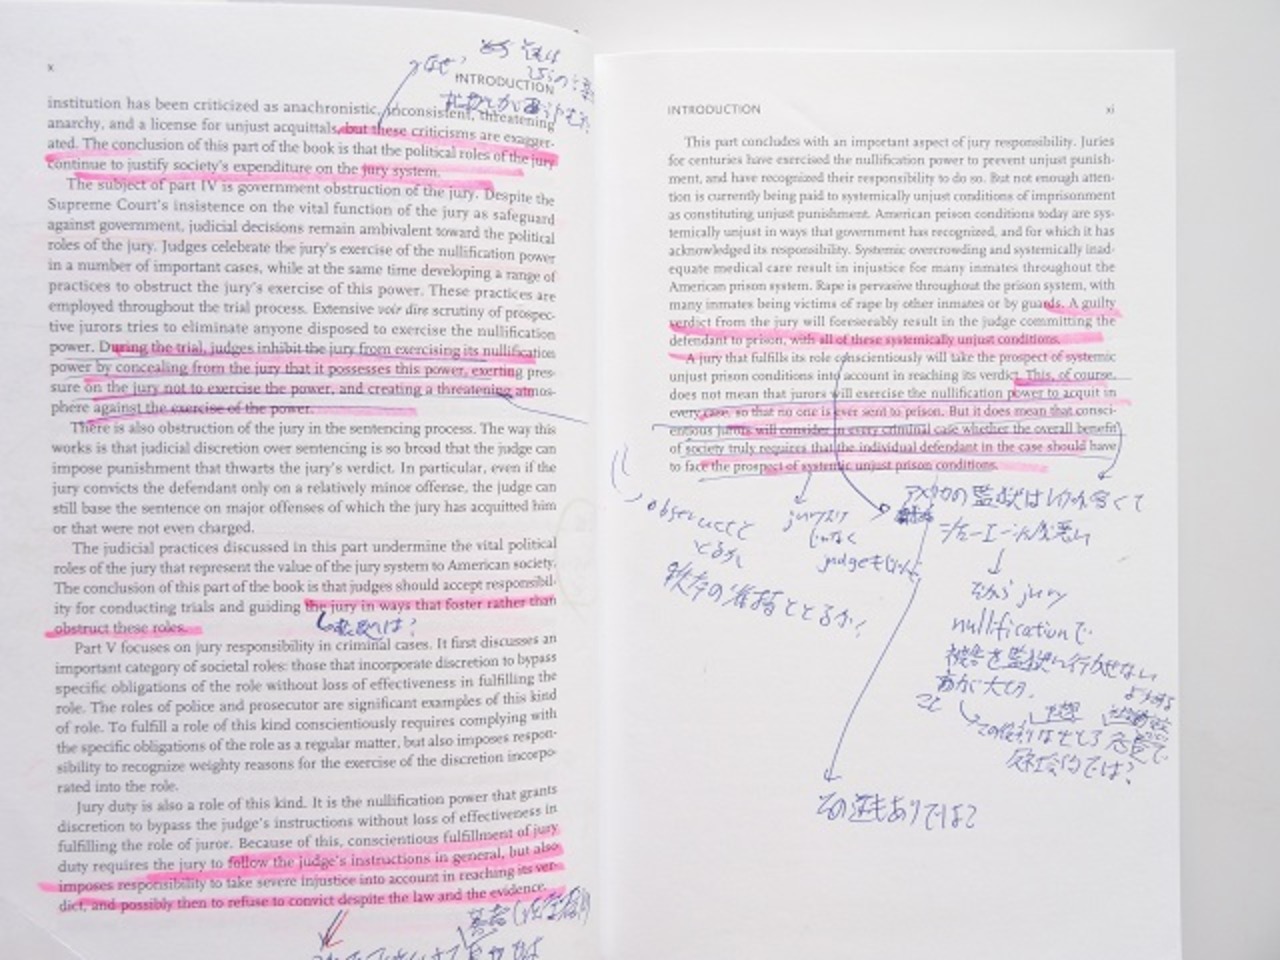 x
なぜ?
INTRODUCTION
institution has been criticized as anachronistic, inconsistent, threatening
anarchy, and a license for unjust acquittals, but these criticisms are exagger-
ated. The conclusion of this part of the book is that the political roles of the jury
continue to justify society's expenditure on the jury system.
The subject of part IV is government obstruction of the jury. Despite the
Supreme Court's insistence on the vital function of the jury as safeguard
against government, judicial decisions remain ambivalent toward the political
roles of the jury. Judges celebrate the jury's exercise of the nullification power
in a number of important cases, while at the same time developing a range of
practices to obstruct the jury's exercise of this power. These practices are
employed throughout the trial process. Extensive voir dire scrutiny of prospec-
tive jurors tries to eliminate anyone disposed to exercise the nullification
power. During the trial, judges inhibit the jury from exercising its nullification
power by concealing from the jury that it possesses this power, exerting pres-
sure on the jury not to exercise the power, and creating a threatening atmos-
phere against the exercise of the power.
There is also obstruction of the jury in the sentencing process. The way this
works is that judicial discretion over sentencing is so broad that the judge can
impose punishment that thwarts the jury's verdict. In particular, even if the
jury convicts the defendant only on a relatively minor offense, the judge can
still base the sentence on major offenses of which the jury has acquitted him
or that were not even charged.
The judicial practices discussed in this part undermine the vital political
roles of the jury that represent the value of the jury system to American society.
The conclusion of this part of the book is that judges should accept responsibil-
ity for conducting trials and guiding the jury in ways that foster rather than
obstruct these roles.
Part V focuses on jury responsibility in criminal cases. It first discusses an
important category of societal roles: those that incorporate discretion to bypass
specific obligations of the role without loss of effectiveness in fulfilling the
role. The roles of police and prosecutor are significant examples of this kind
of role. To fulfill a role of this kind conscientiously requires complying with
the specific obligations of the role as a regular matter, but also imposes respon-
sibility to recognize weighty reasons for the exercise of the discretion incorpo-
rated into the role.
Jury duty is also a role of this kind. It is the nullification power that grants
discretion to bypass the judge's instructions without loss of effectiveness in
fulfilling the role of juror. Because of this, conscientious fulfillment of jury
duty requires the jury to follow the judge's instructions in general, but also
imposes responsibility to take severe injustice into account in reaching its ver-
dict, and possibly then to refuse to convict despite the law and the evidence.
INTRODUCTION
xi
This part concludes with an important aspect of jury responsibility. Juries
for centuries have exercised the nullification power to prevent unjust punish-
ment, and have recognized their responsibility to do so. But not enough atten-
tion is currently being paid to systemically unjust conditions of imprisonment
as constituting unjust punishment. American prison conditions today are sys-
temically unjust in ways that government has recognized, and for which it has
acknowledged its responsibility. Systemic overcrowding and systemically inad-
equate medical care result in injustice for many inmates throughout the
American prison system. Rape is pervasive throughout the prison system, with
many inmates being victims of rape by other inmates or by guards. A guilty
verdict from the jury will foreseeably result in the judge committing the
defendant to prison, with all of these systemically unjust conditions.
A jury that fulfills its role conscientiously will take the prospect of systemic
unjust prison conditions into account in reaching its verdict. This, of course,
does not mean that jurors will exercise the nullification power to acquit in
every case, so that no one is ever sent to prison. But it does mean that consci-
entious jurors will consider in every criminal case whether the overall benefit
of society truly requires that the individual defendant in the case should have
to face the prospect of systemic unjust prison conditions.
アメリカの監獄はレイプが多くて
juryだけ
じゃなく
judgeもじゃん
とるか
秩序の維持ととるか?
↓
だから jury
nullificationで
被告を監獄へ行かせない
事が大切。
反社会的では?
その逆もありでは?